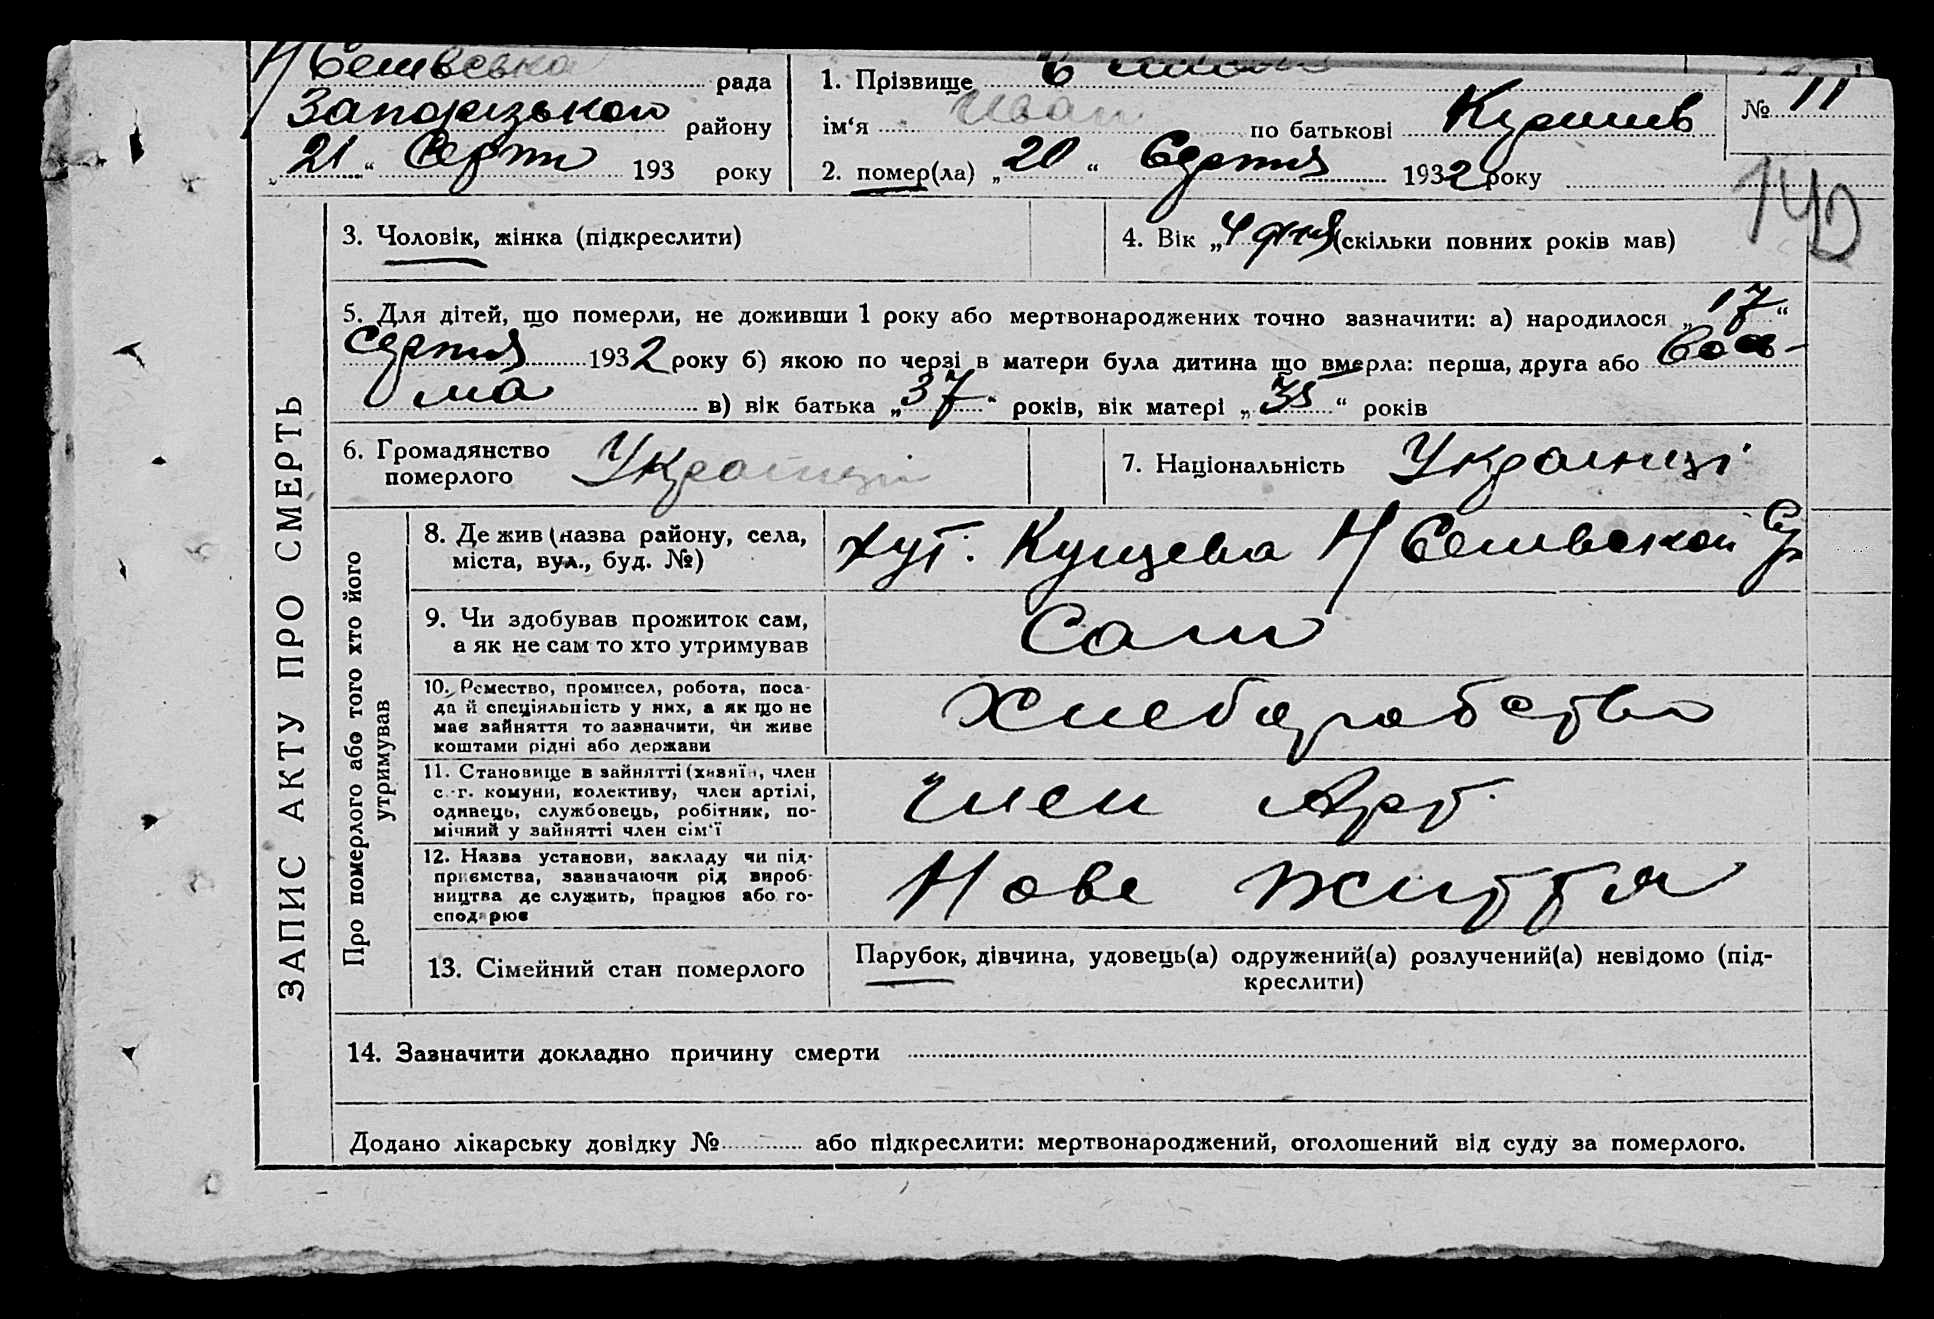 рада
Запорізького району
„21“ Серпн 193 року
1. Прізвище
ім‘я Иван по батькові
2. помер(ла) „20“ Серпня 1932 року
№ 11
140
ЗАПИС АКТУ ПРО СМЕРТЬ
3. Чоловік, жінка (підкреслити)
4. Вік „4 дня (скільки повних років мав)
5. Для дітей, що померли, не доживши 1 року або мертвонароджених точно зазначити: а) народилося „17“
Серпня 1932 року б) якою по черзі в матери була дитина що вмерла: перша, друга або Вось-
ма в) вік батька „37“ років, вік матері „35“ років
6. Громадянство
померлого Українці
7. Національність Українці
Про померлого або того хто його
утримував
8. Де жив (назва району, села,
міста, вул., буд. №)
хут. Кущева
9. Чи здобував прожиток сам,
а як не сам то хто утримував
Сам
10. Ремество, промисел, робота, поса-
да й спеціяльність у них, а як що не
має зайняття то зазначити, чи живе
коштами рідні або держави
Хлеборобство
11. Становище в зайнятті (хазяїн, член
с.-г. комуни, колективу, член артілі,
одинець, службовець, робітник, по-
мічний у зайнятті член сім‘ї
член Арт.
12. Назва установи, закладу чи під-
приємства, зазначаючи рід вироб-
ництва де служить, працює або го-
сподарює
Нове життя
13. Сімейний стан померлого
Парубок, дівчина, удовець(а) одружений(а) розлучений(а) невідомо (під-
креслити)
14. Зазначити докладно причину смерти
Додано лікарську довідку № або підкреслити: мертвонароджений, оголошений від суду за померлого.